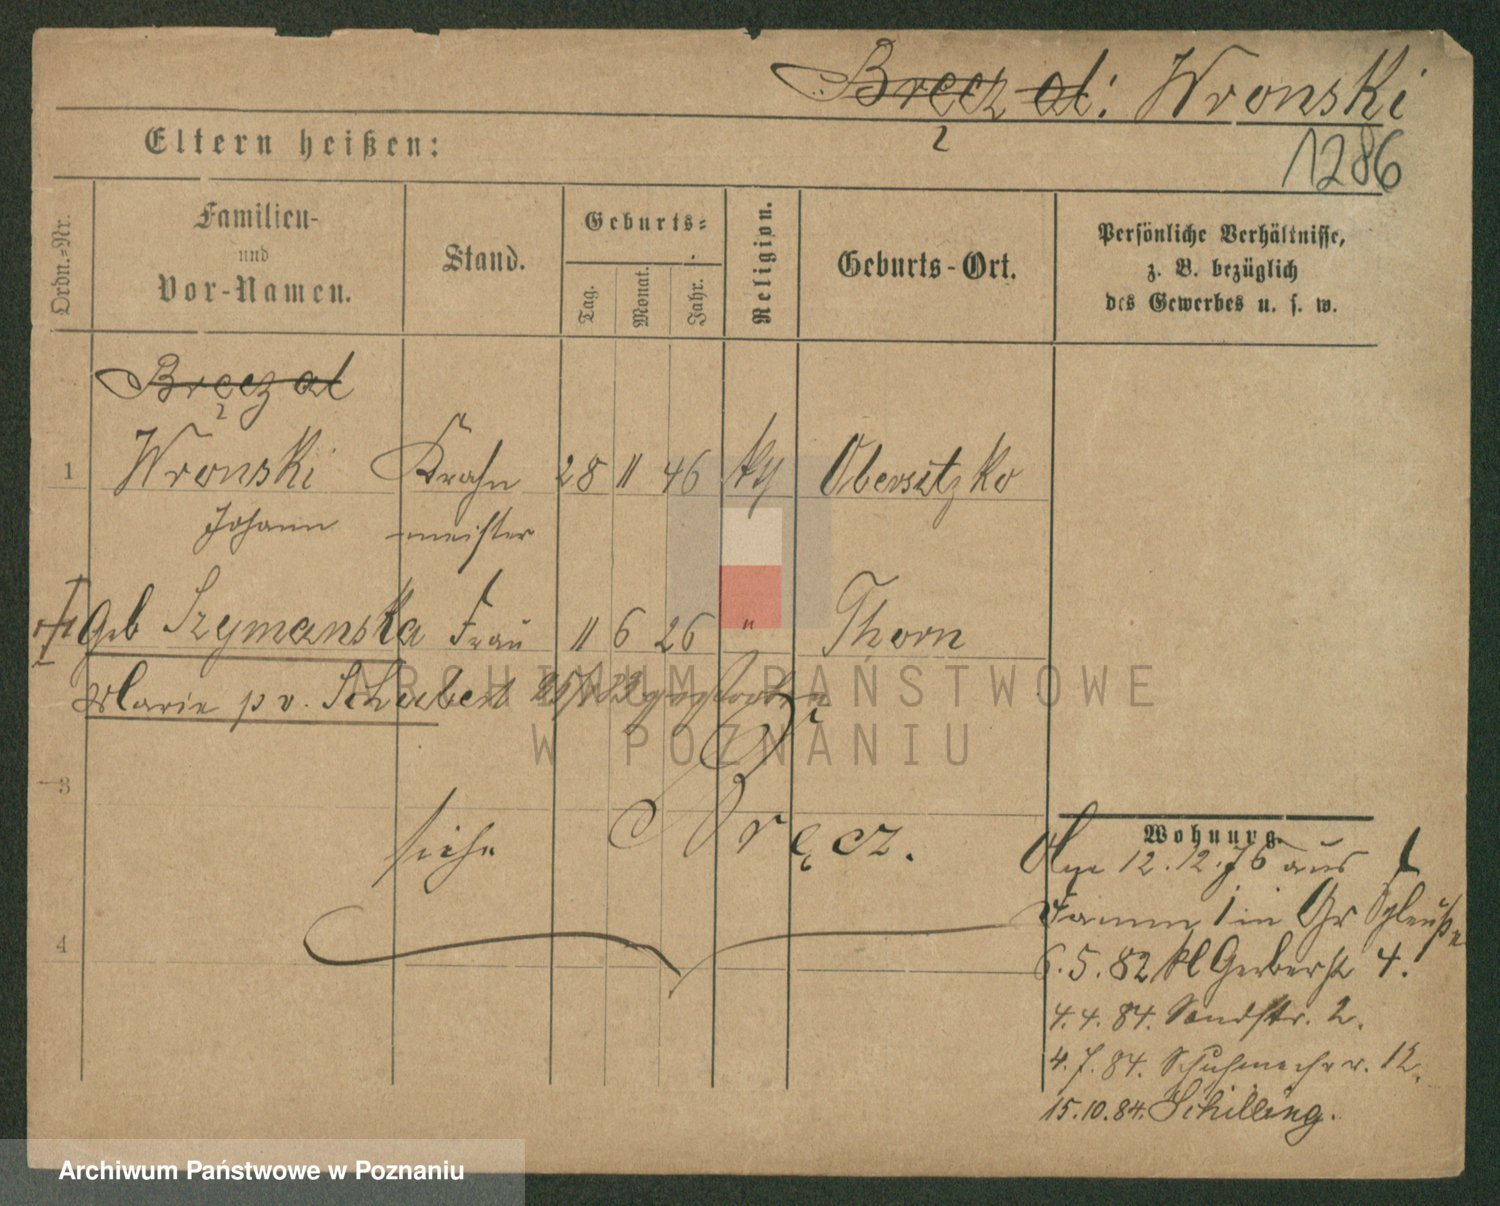 Bręcz al: Wronski
2
1286
Eltern heißen:
Ordn.-Nr.
Familien-
und
Vor-Namen.
Stand.
Geburts-
Tag.
Monat.
Jahr.
Religion.
Geburts-Ort.
Persönliche Verhältnisse,
z. B. bezüglich
des Gewerbes u. s. w.
Bręcz al
2
1 Wronski Krahn 28 11 46 kth Obersitzko
Johann meister
geb Szymanska Frau 11 6 26 " Thorn
Marie p v. Schubert
3
siehe Bręcz.
4
Wohnung.
12.12.76 aus
6.5.82 kl Gerberstr 4.
4.4.84. Sandstr. 2.
4.7.84. Schuhmacherr. 12.
15.10.84. Schilling.
ARCHIWUM PAŃSTWOWE
W POZNANIU
Archiwum Państwowe w Poznaniu